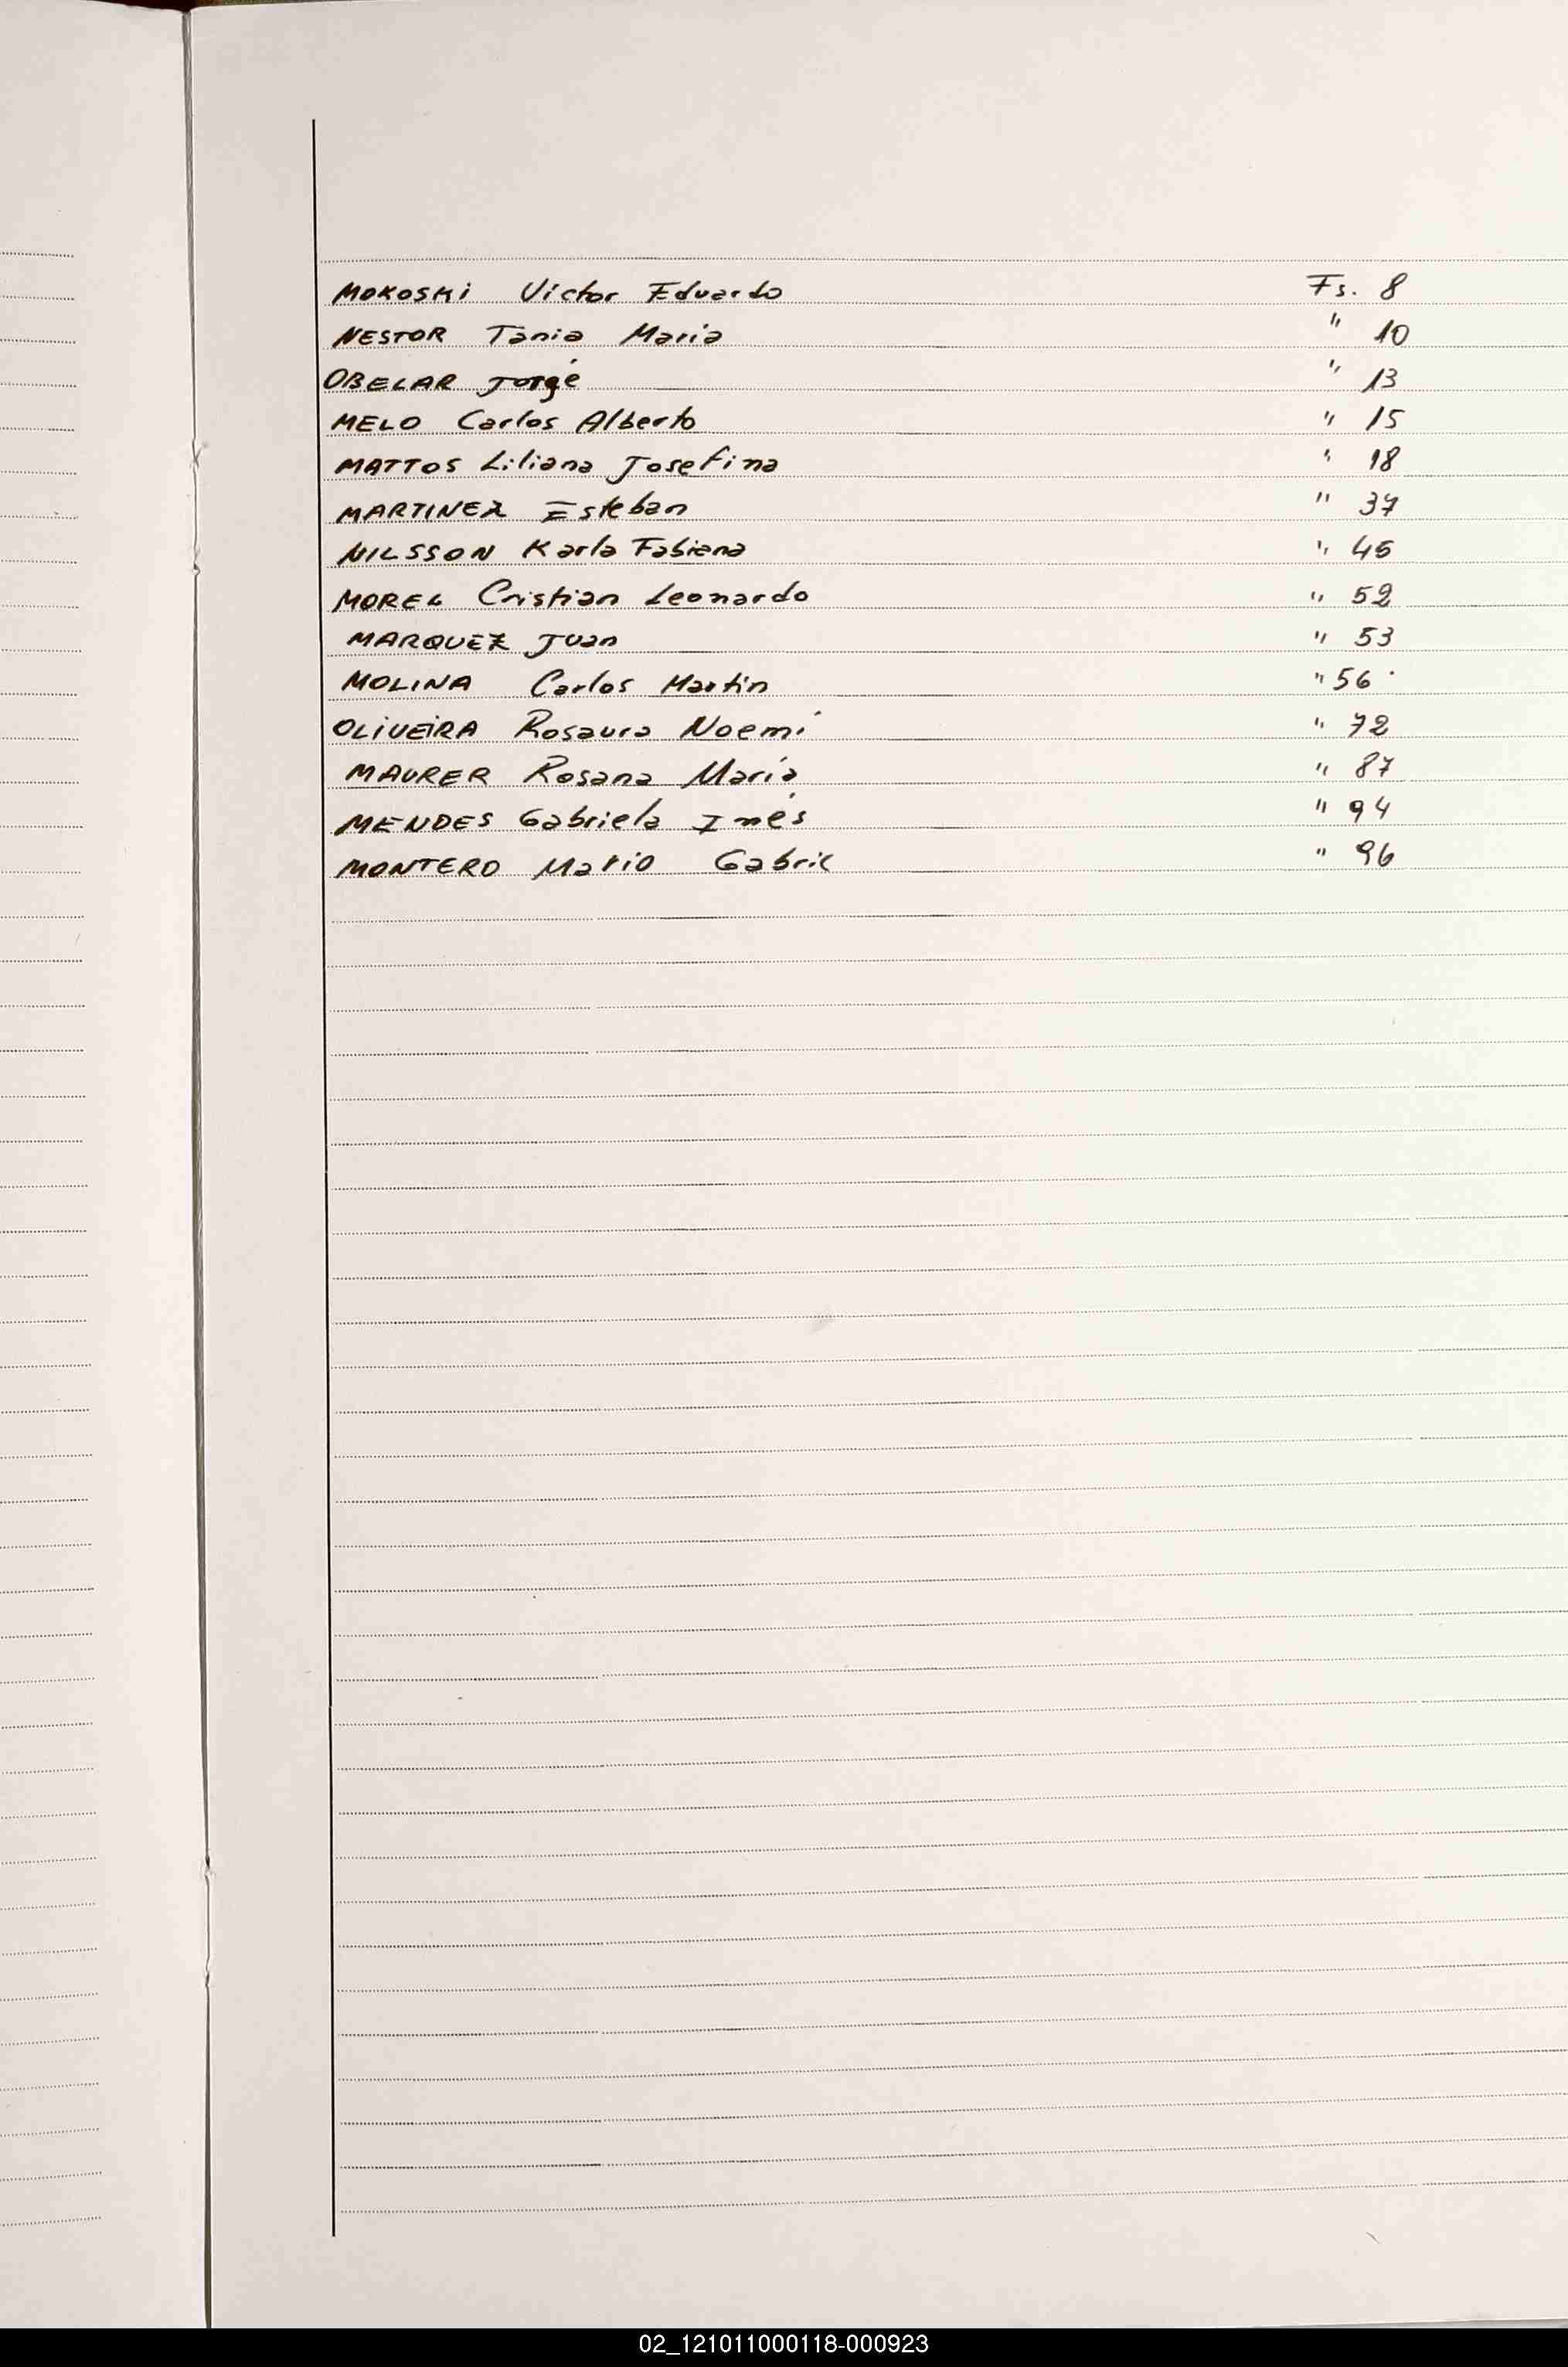 MOKOSKI Victor Eduardo Fs. 8
NESTOR Tania Maria " 10
OBELAR Jorge " 13
MELO Carlos Alberto " 15
MATTOS Liliana Josefina " 18
MARTINEZ Esteban " 37
NILSSON Karla Fabiana " 45
MOREL Cristian Leonardo " 52
MARQUEZ Juan " 53
MOLINA Carlos Martin " 56
OLIVEIRA Rosaura Noemí " 72
MAURER Rosana María " 87
MENDES Gabriela Inés " 94
MONTERO Mario Gabril " 96
02_121011000118-000923